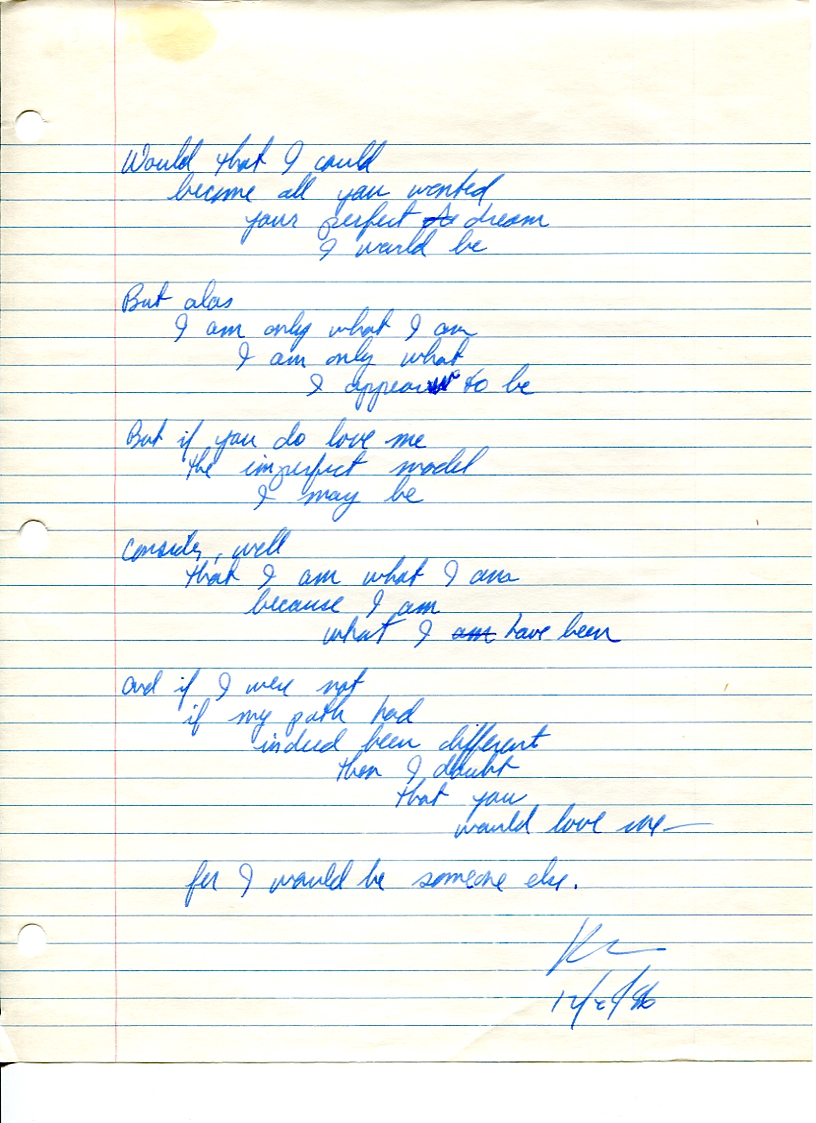 Would that I could
become all you wanted
your perfect dream
I would be
But alas
I am only what I am
I am only what
I appear to be
But if you do love me
the imperfect model
I may be
Consider, well
that I am what I am
because I am
what I am have been
and if I were not
if my path had
indeed been different
then I doubt
that you
would love me—
for I would be someone else.